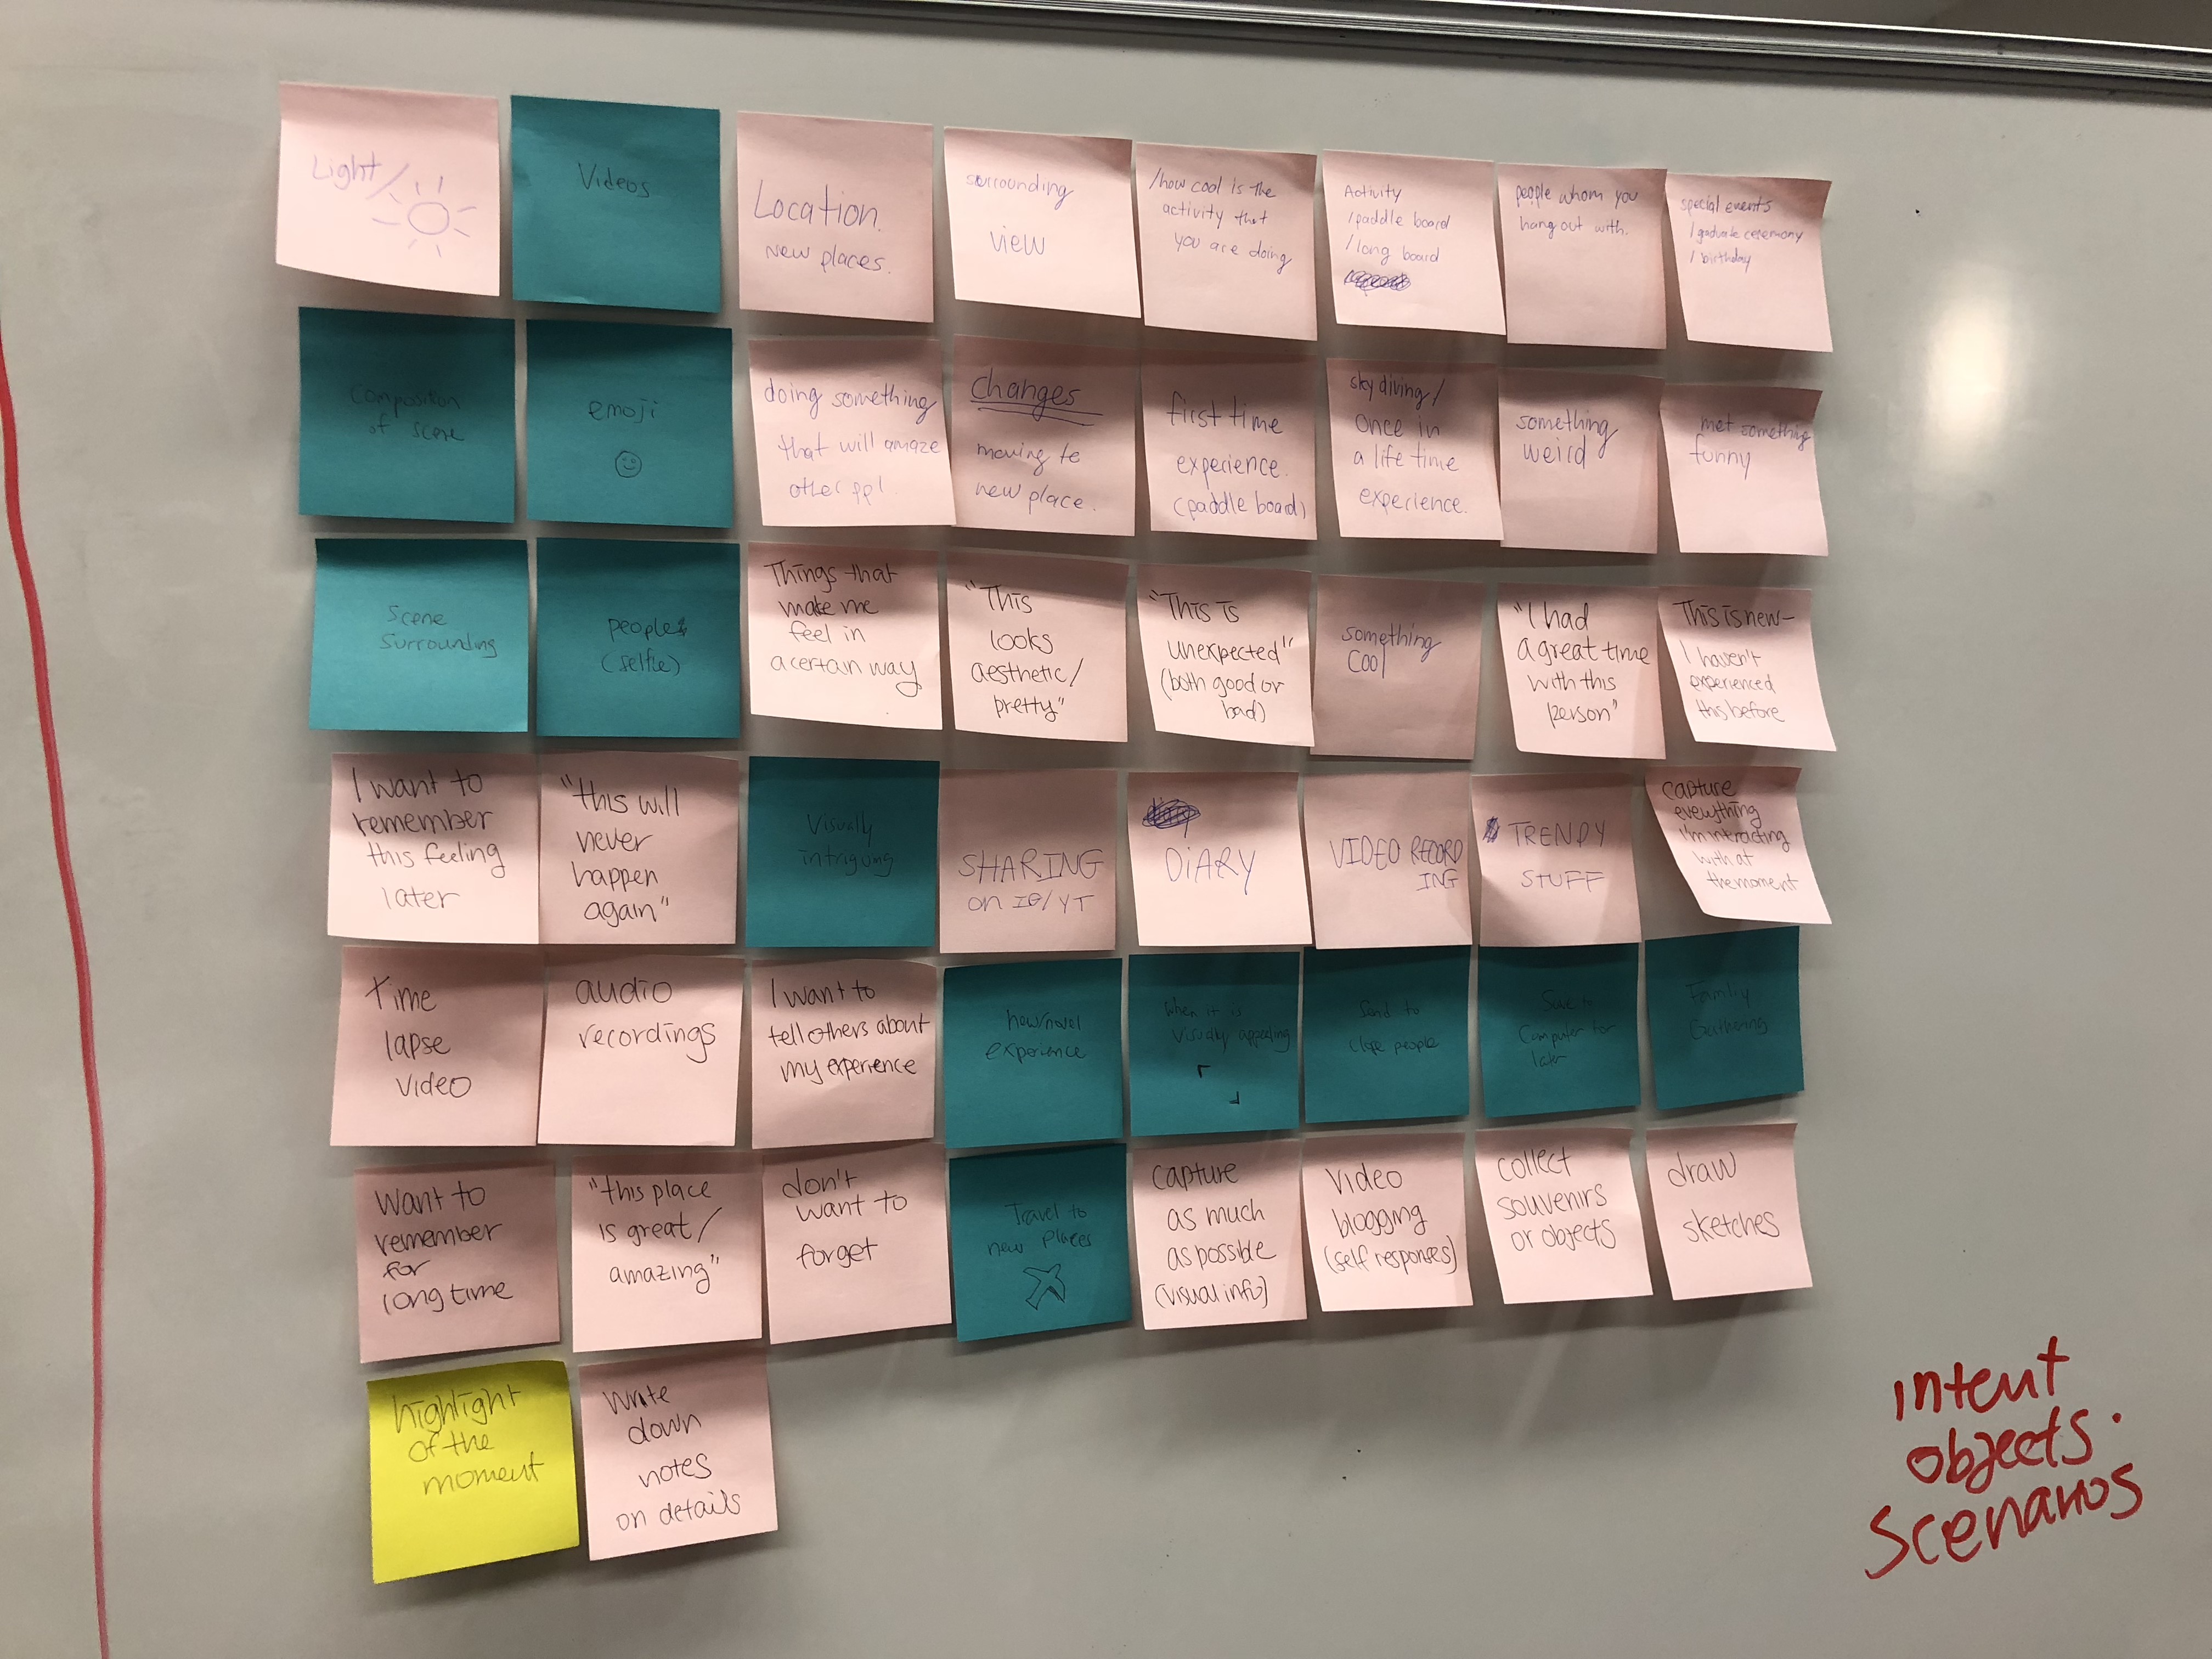 Light/
Videos
Location.
New places.
surrounding
view
/how cool is the
activity that
you are doing
Activity
/paddle board
/long board
people whom you
hang out with.
special events
/graduate ceremony
/birthday
Composition
of scene
emoji
doing something
that will amaze
other ppl.
Changes
moving to
new place.
first time
experience.
(paddle board)
sky diving/
once in
a life time
experience.
something
weird
met something
funny
Scene
Surrounding
people
(selfie)
Things that
make me
feel in
a certain way
"This
looks
aesthetic/
pretty"
"This is
unexpected"
(both good or
bad)
something
cool
"I had
a great time
with this
person"
This is new-
I haven't
experienced
this before
I want to
remember
this feeling
later
"this will
never
happen
again"
Visually
intriguing
SHARING
on IG/YT
DiARY
VIDEO RECORD
ING
TRENDY
STUFF
capture
everything
I'm intracting
with at
the moment
time
lapse
video
audio
recordings
I want to
tell others about
my experience
new/novel
experience
When it is
Visually appealing
Send to
close people
Save to
Computer for
later
Family
Gathering
Want to
remember
for
long time
"this place
is great/
amazing"
don't
want to
forget
Travel to
new places
capture
as much
as possible
(visual info)
video
blogging
(self responses)
collect
souvenirs
or objects
draw
sketches
highlight
of the
moment
write
down
notes
on details
intent
objects.
scenarios